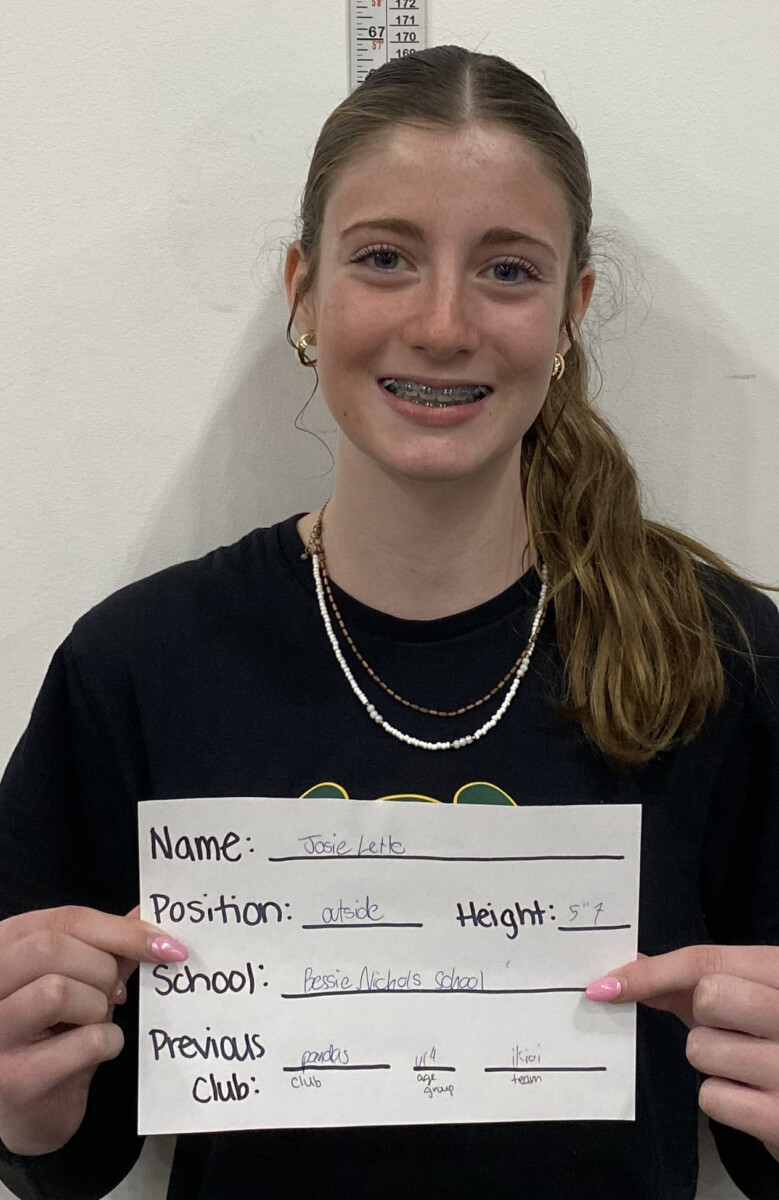 58" 172
171
67 170
57" 169
Name: Josie Letk
Position: outside Height: 5"7
School: Bessie Nichols School
Previous pandas u14 ikioi
Club: club age group team